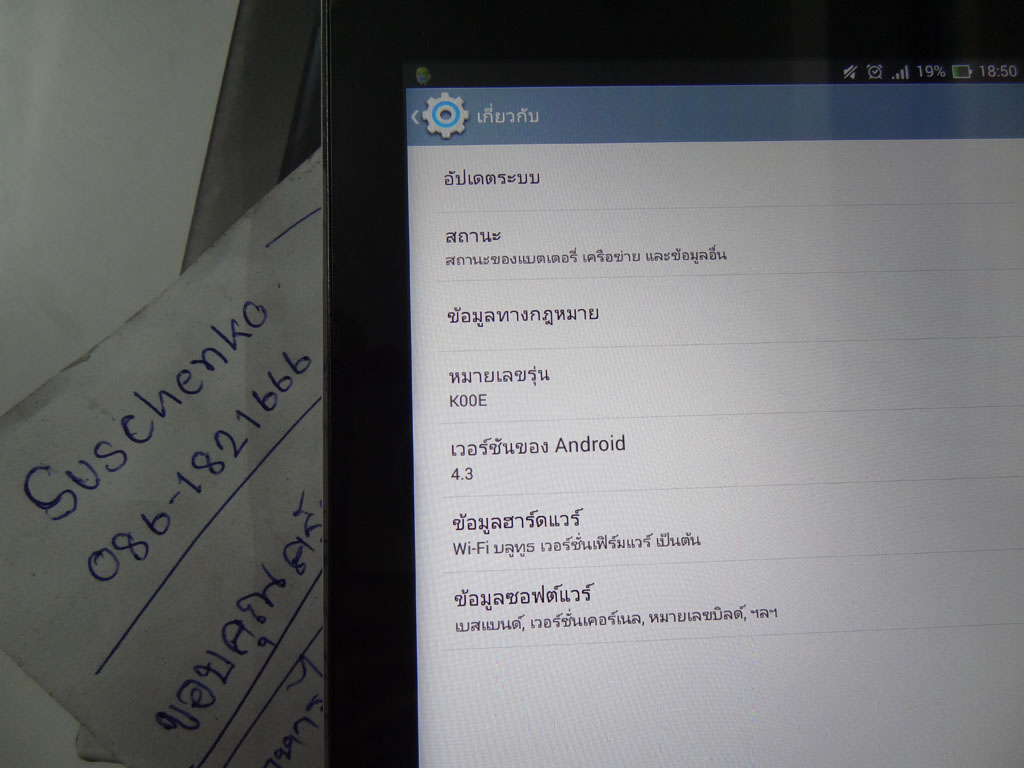 19% 18:50
เกี่ยวกับ
อัปเดตระบบ
สถานะ
สถานะของแบตเตอรี่ เครือข่าย และข้อมูลอื่น
ข้อมูลทางกฎหมาย
หมายเลขรุ่น
K00E
เวอร์ชันของ Android
4.3
ข้อมูลฮาร์ดแวร์
Wi-Fi บลูทูธ เวอร์ชั่นเฟิร์มแวร์ เป็นต้น
ข้อมูลซอฟต์แวร์
เบสแบนด์, เวอร์ชั่นเคอร์เนล, หมายเลขบิลด์, ฯลฯ
Suschenko
086-1821666
ขอบคุณครั